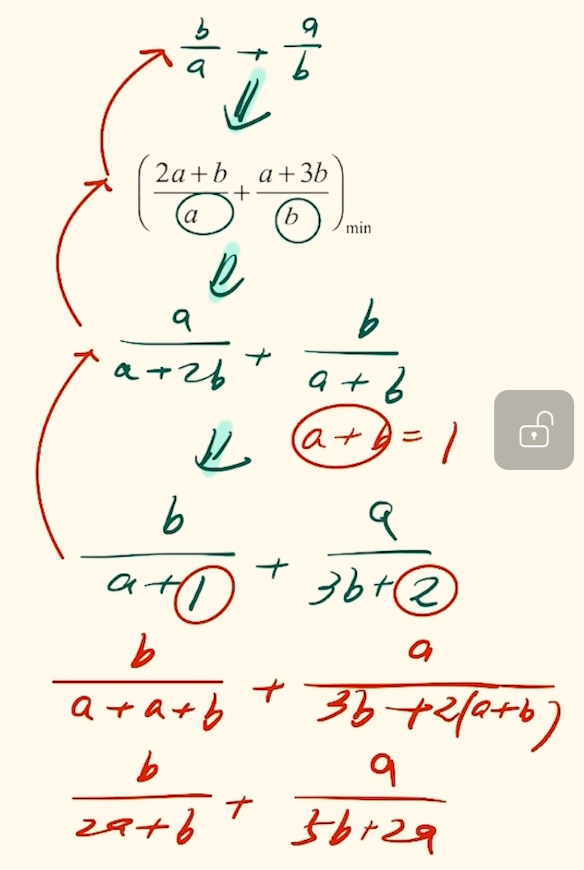 b/a + a/b
⇓
((2a+b)/a + (a+3b)/b)min
⇓
a/(a+2b) + b/(a+b)
⇓ a+b=1
b/(a+1) + a/(3b+2)
b/(a+a+b) + a/(3b+2(a+b))
b/(2a+b) + a/(5b+2a)